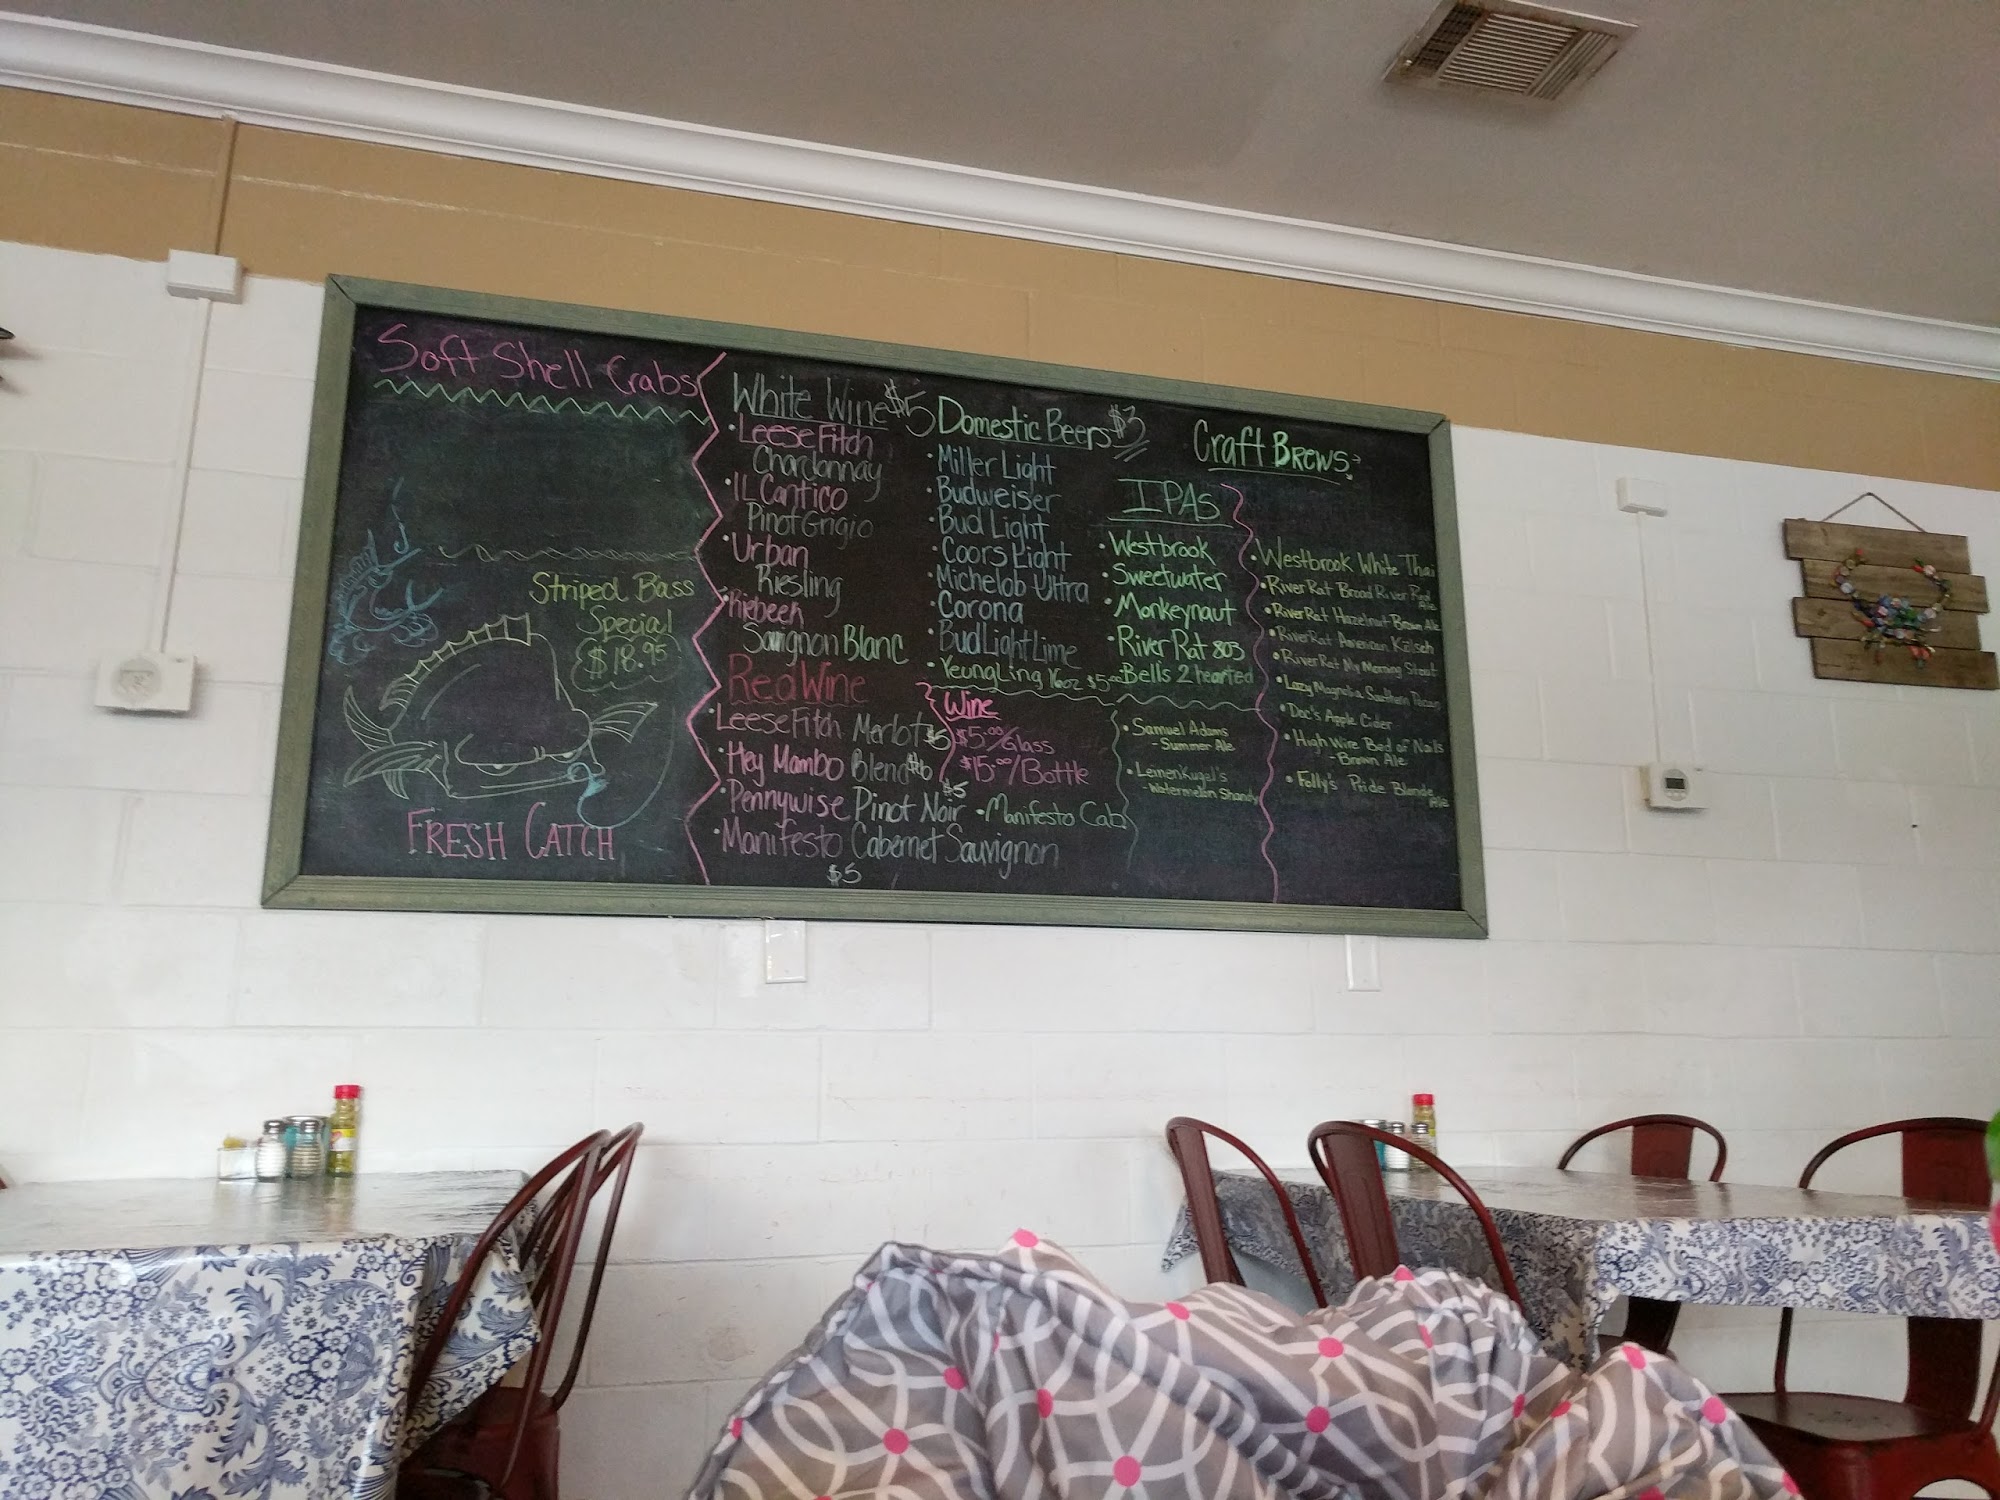 Soft Shell Crabs
Striped Bass
Special
$18.95
FRESH CATCH
White Wine $5
• Leese Fitch
Chardonnay
• IL Cantico
Pinot Grigio
• Urban
Riesling
• Riebeek
Sauvignon Blanc
Red Wine
• Leese Fitch Merlot $5
• Hey Mambo Blend $6
• Pennywise Pinot Noir $5
• Manifesto Cab
• Manifesto Cabernet Sauvignon
$5
Domestic Beers $3
• Miller Light
• Budweiser
• Bud Light
• Coors Light
• Michelob Ultra
• Corona
• Bud Light Lime
• YeungLing 16oz $5.00
Wine
$5.00/Glass
$15.00/Bottle
Craft Brews
IPAs
• Westbrook
• Sweetwater
• Monkeynaut
• River Rat 803
• Bell's 2 hearted
• Samuel Adams
- Summer Ale
• Leinenkugel's
- Watermelon Shandy
• Westbrook White Thai
• River Rat Broad River Red Ale
• River Rat Hazelnut Brown Ale
• River Rat American Kölsch
• River Rat My Morning Stout
• Lazy Magnolia Southern Pecan
• Doc's Apple Cider
• High Wire Bed of Nails
- Brown Ale
• Folly's Pride Blonde Ale